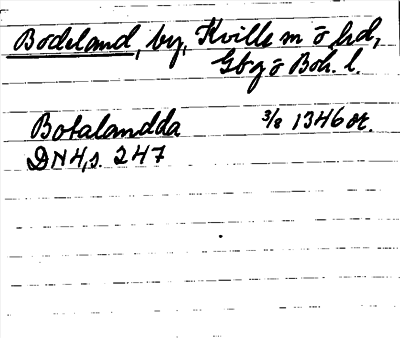 Bodeland, by, Kville sn o hd,
Gbg o Boh. l.
Botalandda 3/8 1346 or.
DN 4, s. 247